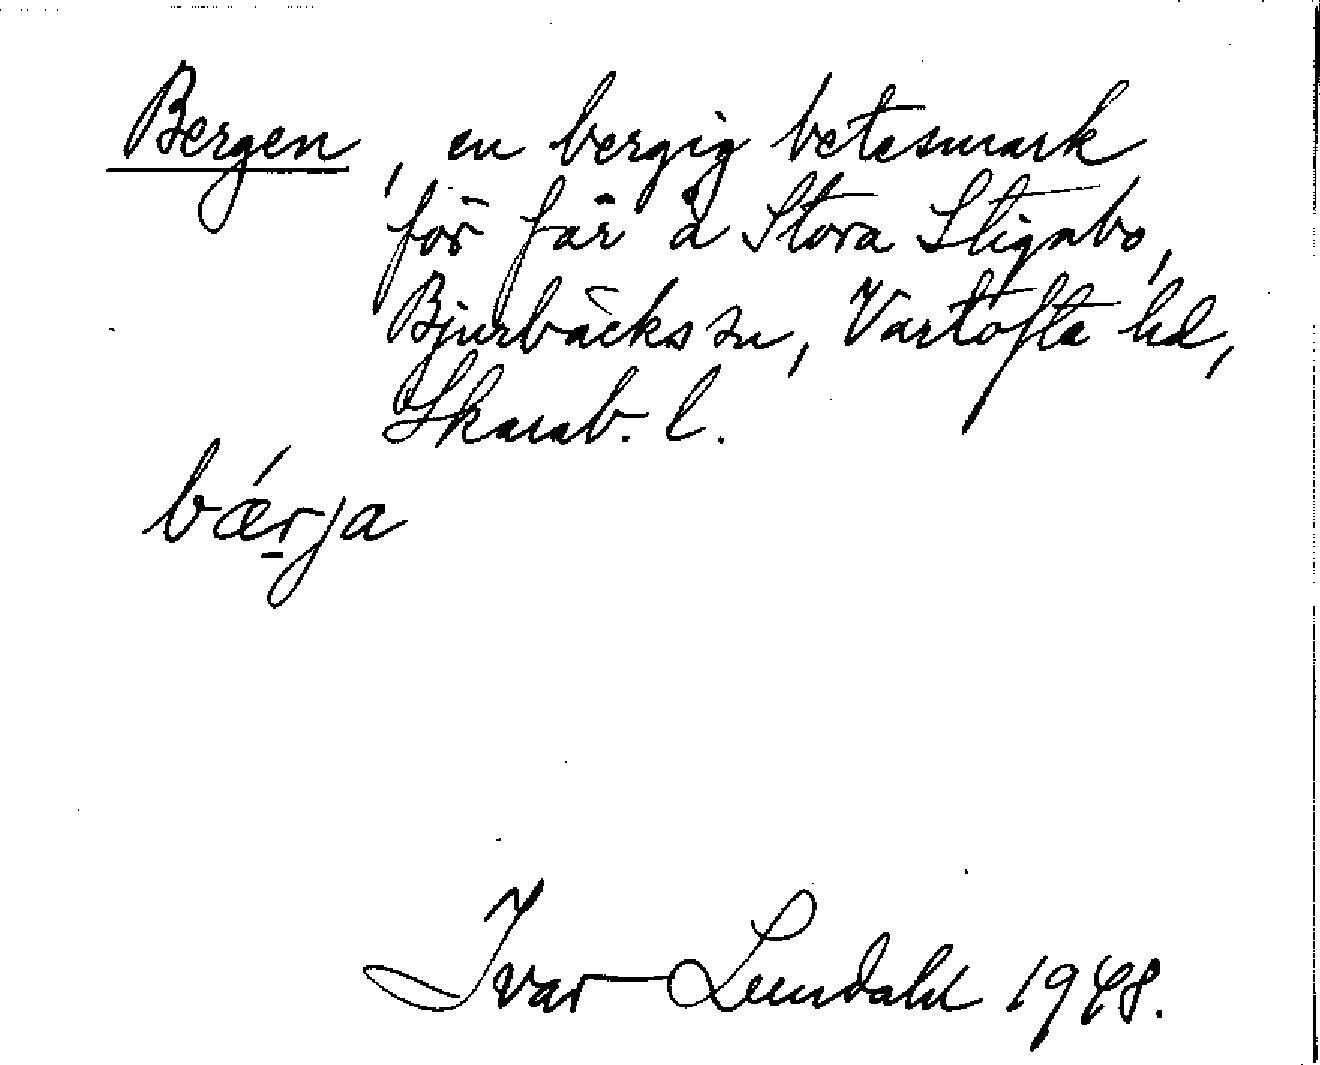 Bergen, en bergig betesmark
för får å Stora Stigabo,
Bjurbäcks sn, Vartofta hd,
Skarab. l.
bǽr̠ja
Ivar Lundahl 1948.